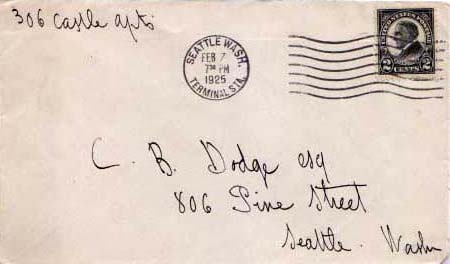 306 Castle apts
SEATTLE WASH.
FEB 7
7 30 PM
1925
TERMINAL STA.
UNITED STATES POSTAGE
2 CENTS 2
C. B. Dodge esq
806 Pine Street
Seattle. Washn